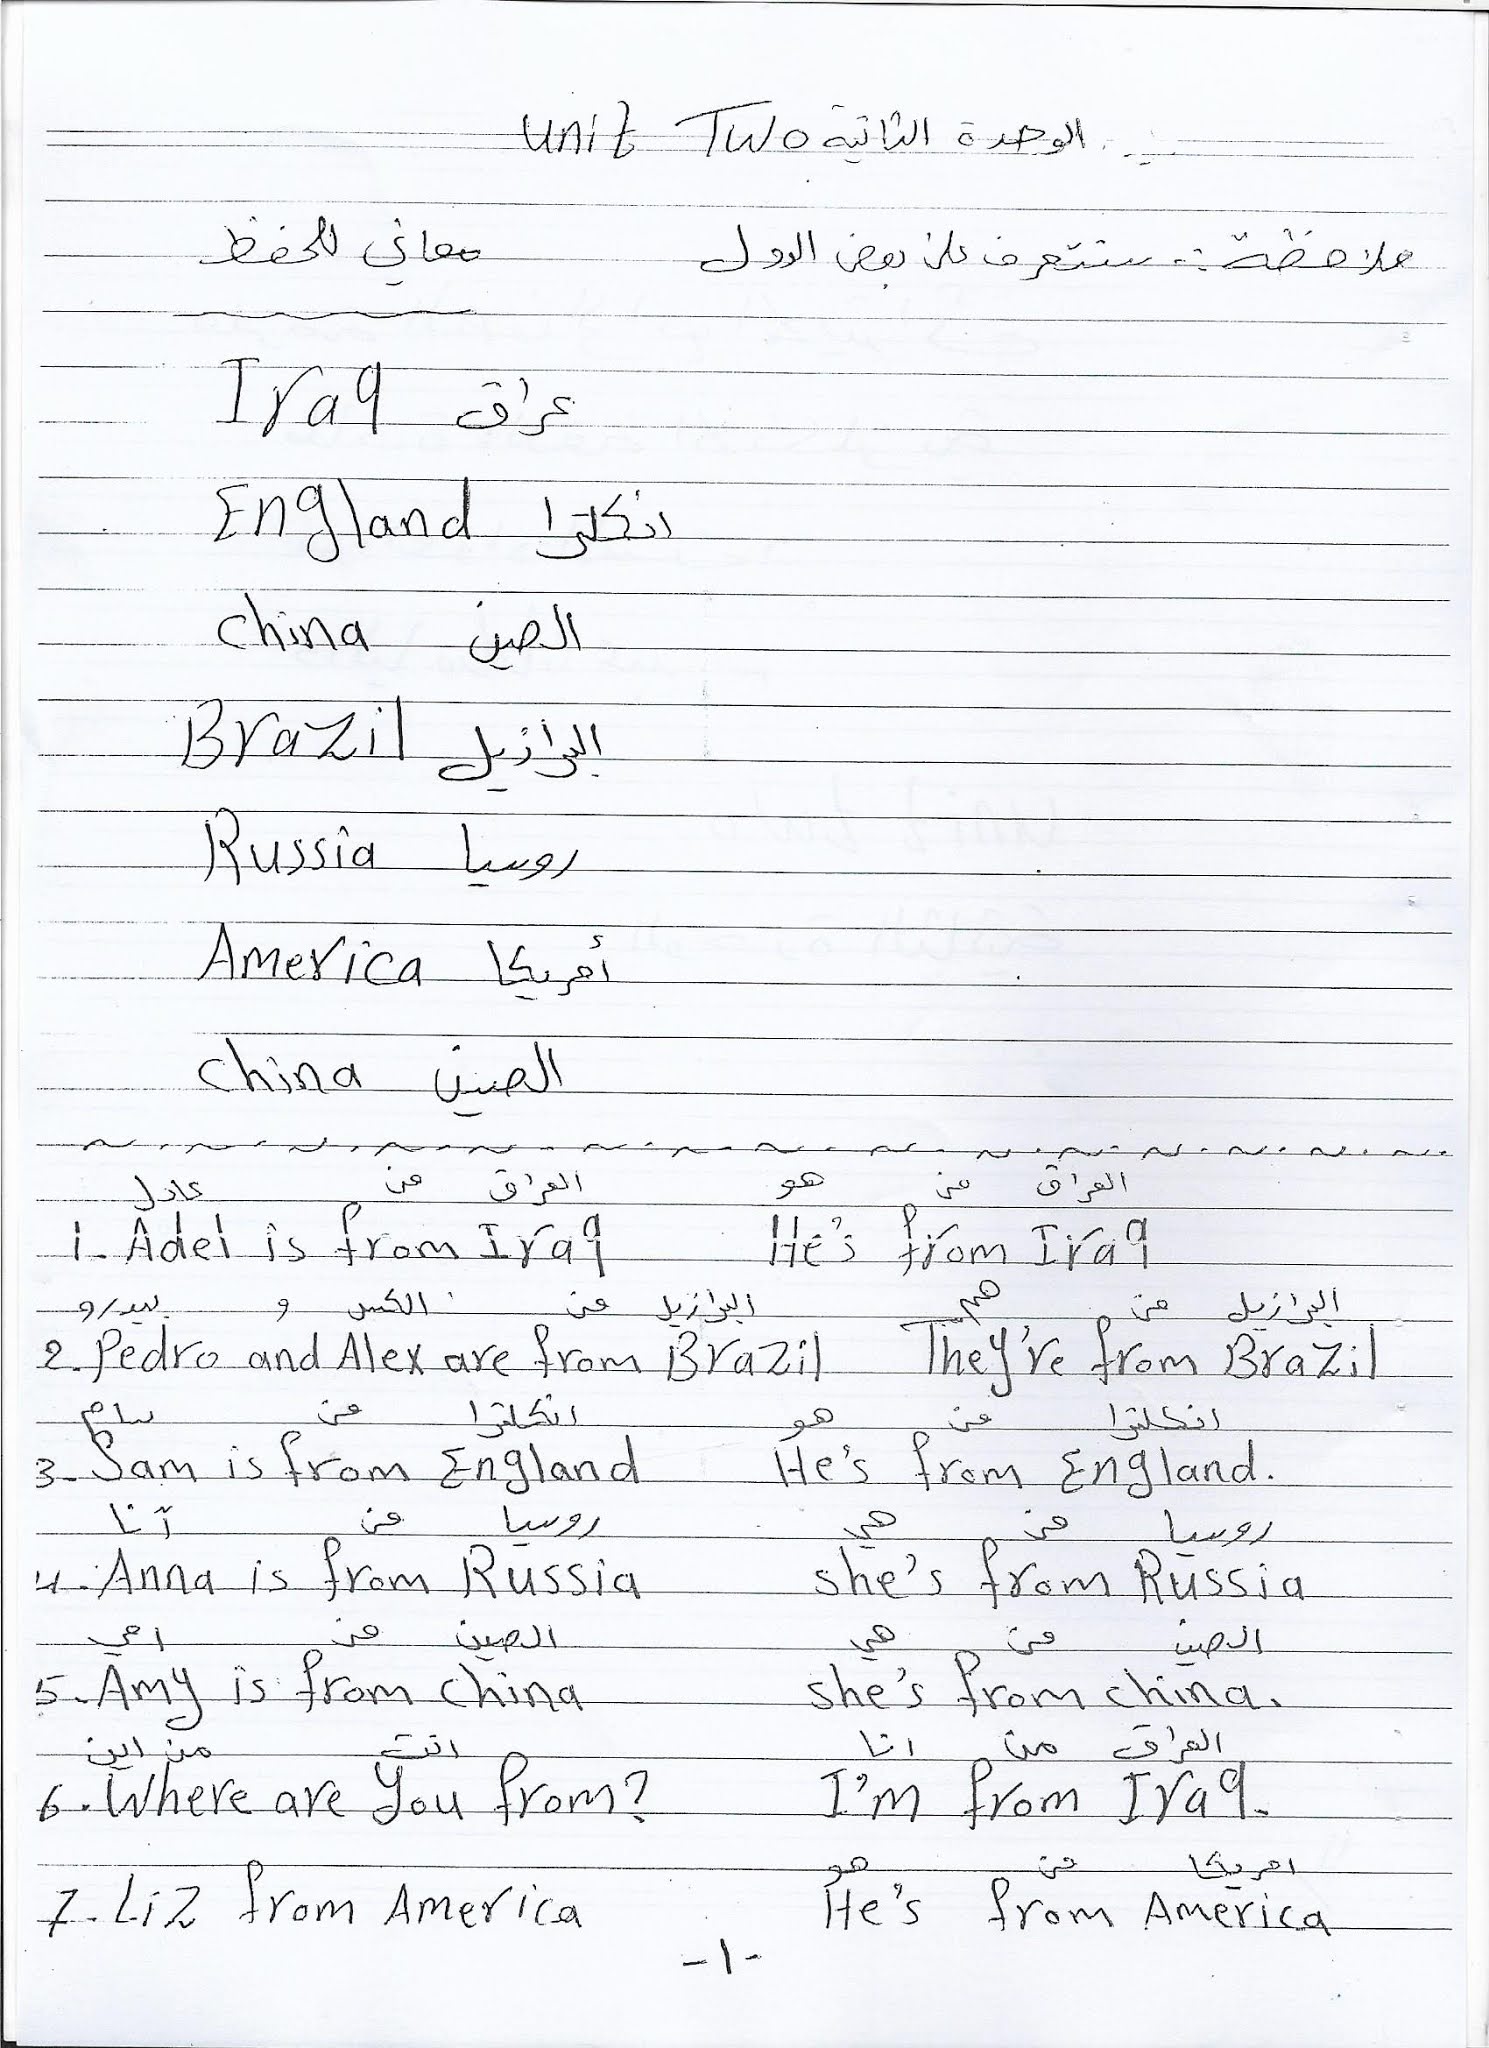 Unit Two الوحدة الثانية
ملاحظة :- سنتعرف على بعض الدول معاني للحفظ
Iraq عراق
England انكلترا
china الصين
Brazil البرازيل
Russia روسيا
America أمريكا
china الصين
عادل من العراق هو من العراق
1- Adel is from Iraq He's from Iraq
بيدرو و الكس من البرازيل هم من البرازيل
2- Pedro and Alex are from Brazil They're from Brazil
سام من انكلترا هو من انكلترا
3- Sam is from England He's from England.
آنا من روسيا هي من روسيا
4- Anna is from Russia she's from Russia
امي من الصين هي من الصين
5- Amy is from china she's from china.
من اين انت انا من العراق
6- Where are you from? I'm from Iraq.
هو من امريكا
7- Liz from America He's from America
-١-